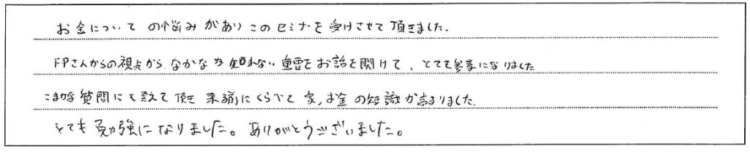 お金についての悩みがありこのセミナーを受けさせて頂きました。
FPさんからの視点からなかなか知れない重要なお話を聞けて、とても参考になりました
こまかな質問にも答えて頂き 来る前にくらべて 家、お金の知識が高まりました。
とても勉強になりました。ありがとうございました。